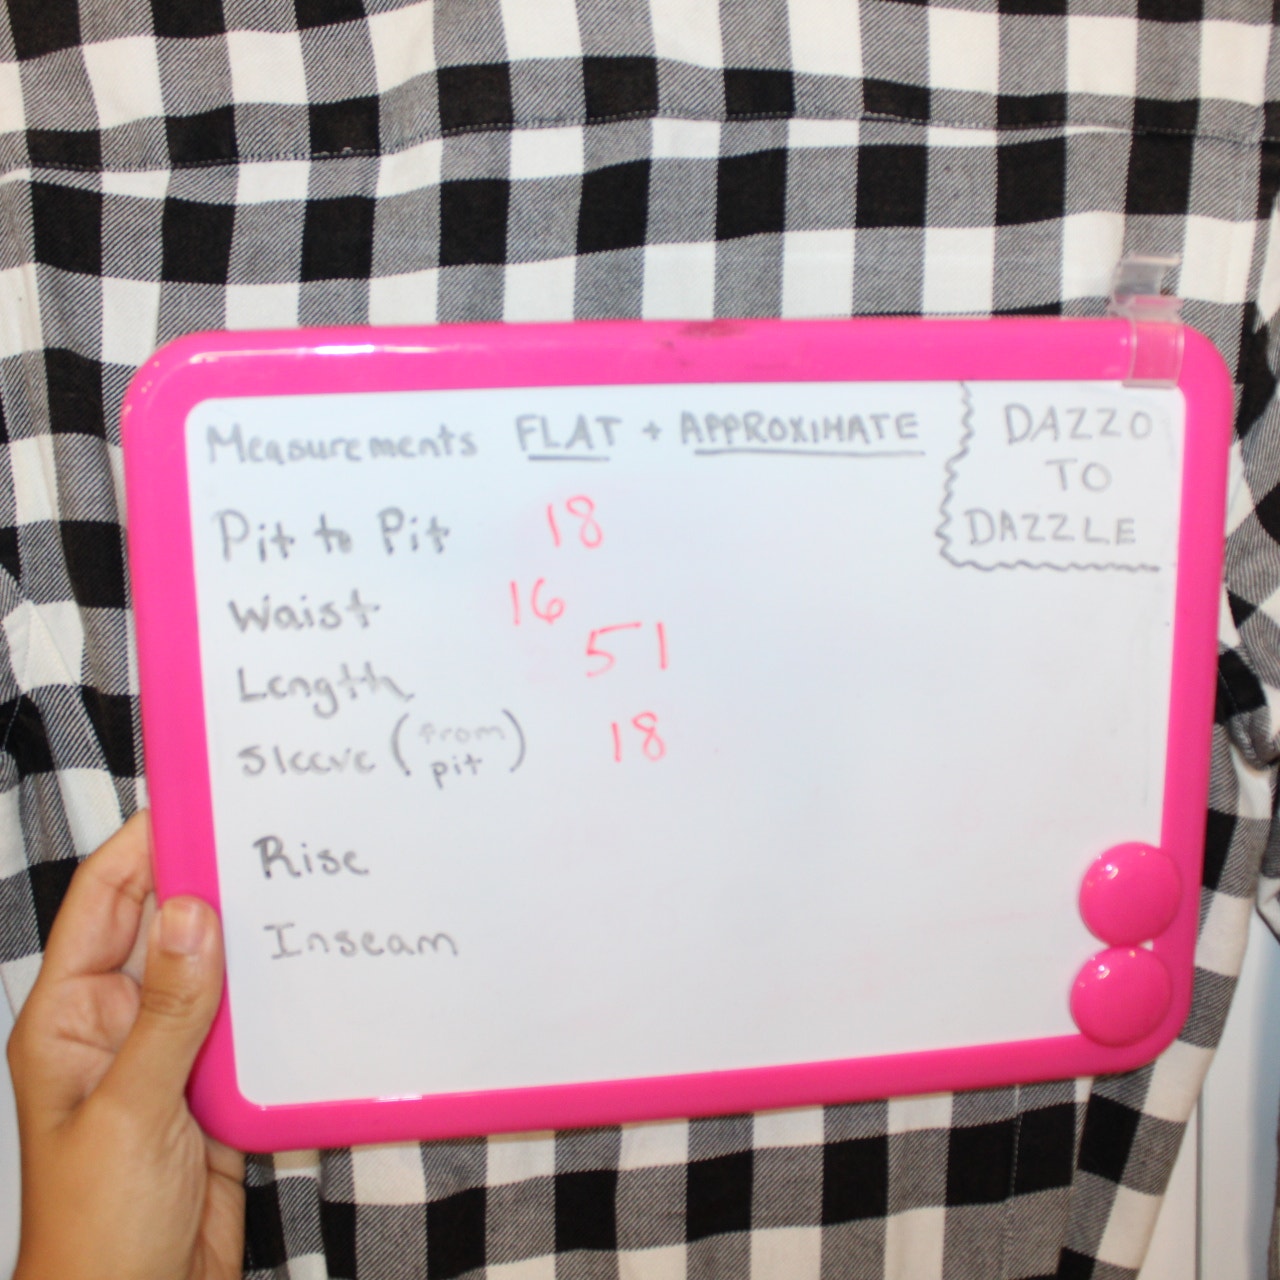 Measurements FLAT + APPROXIMATE
DAZZO
TO
DAZZLE
Pit to Pit 18
Waist 16
Length 51
Sleeve (from pit) 18
Rise
Inseam